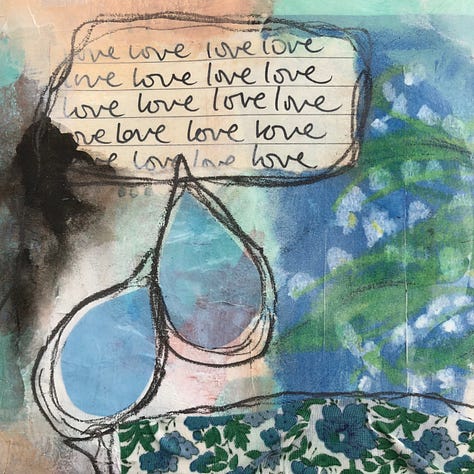 ove love love love
love love love love
love love love love
ove love love love
love love love